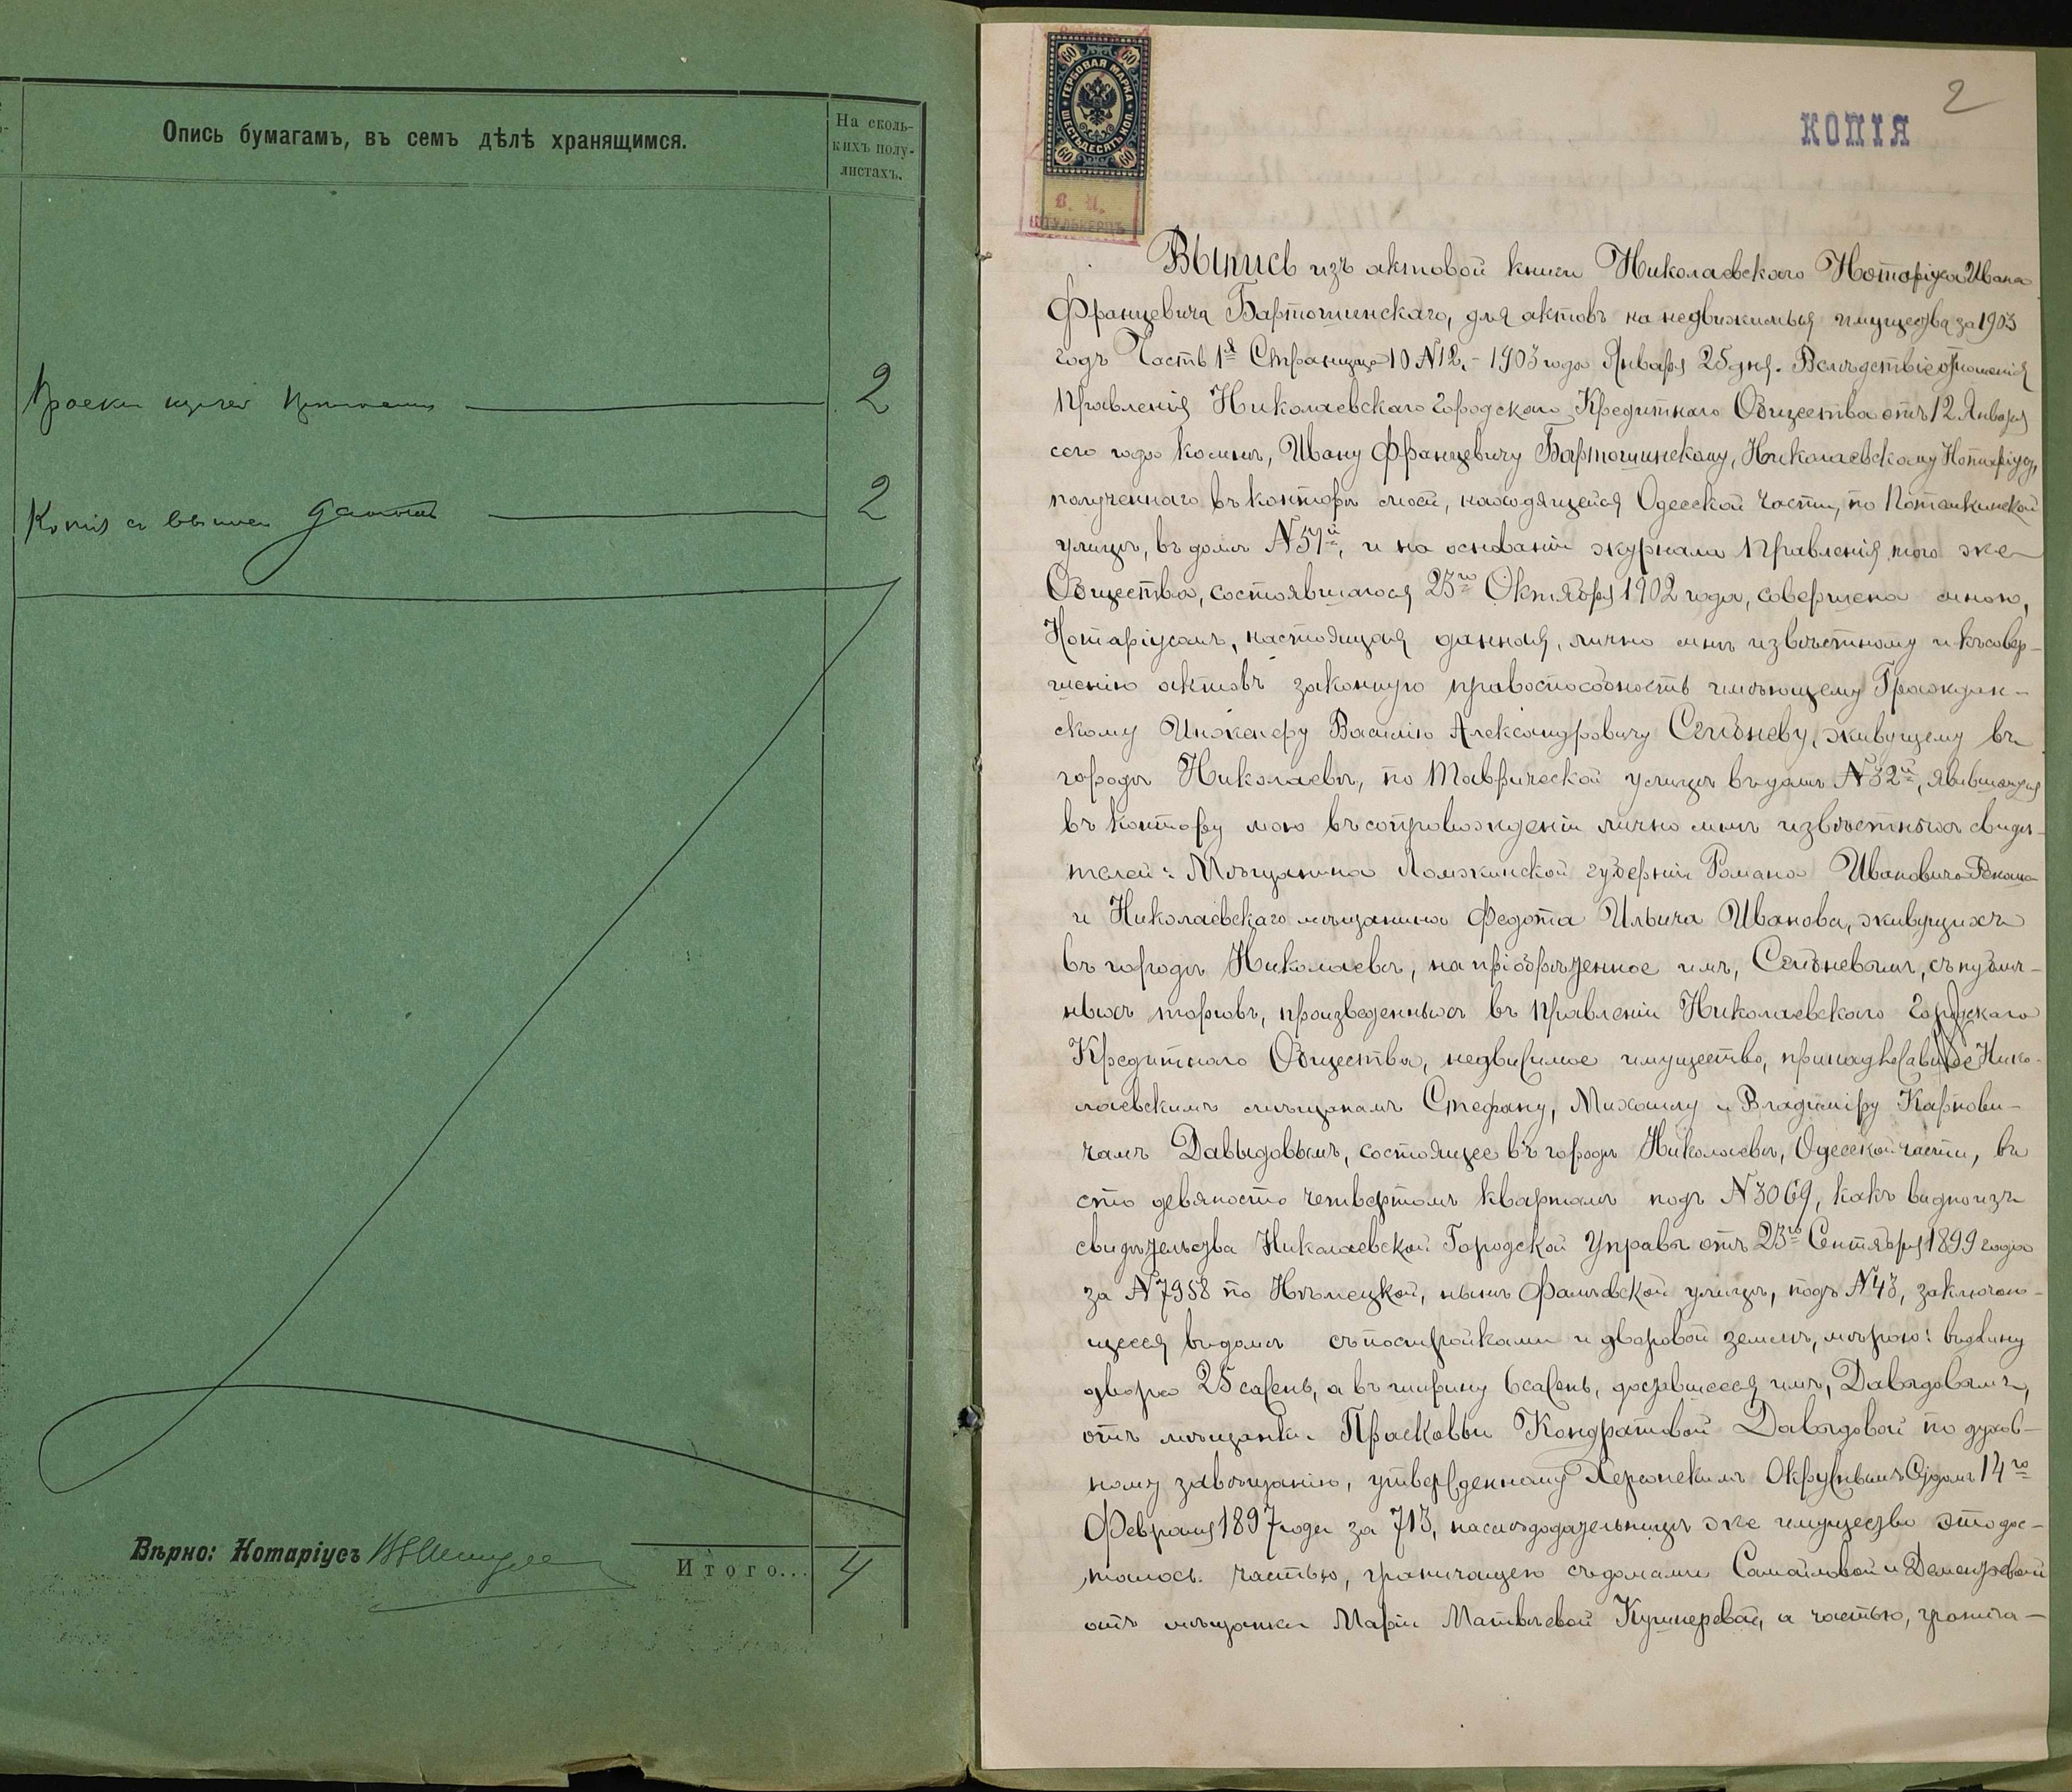 Опись бумагамъ, въ семъ дѣлѣ хранящимся.
На сколь-
кихъ полу-
листахъ.
2
Копія съ данной
2
Вѣрно: Нотаріусъ
Итого... 4
ГЕРБОВАЯ МАРКА
ШЕСТЬДЕСЯТЪ КОП.
60 60 60 60
2
КОПІЯ
Выпись изъ актовой книги Николаевскаго Нотаріуса Ивана
Францевича Бартошинскаго, для актовъ на недвижимыя имущества за 1903
годъ Часть 1я Страница 10 N12.- 1903 года Января 25 дня. Вслѣдствіе отношенія
Правленія Николаевскаго Городского Кредитнаго Общества отъ 12 Января
сего года ко мнѣ, Ивану Францевичу Бартошинскому, Николаевскому Нотаріусу,
полученнаго въ конторѣ моей, находящейся Одесской части, по Потемкинской
улицѣ, въ домѣ N 51й, и на основаніи журнала Правленія того же
Общества, состоявшагося 25го Октября 1902 года, совершена мною,
Нотаріусомъ, настоящая данная, лично мнѣ извѣстному и къ совер-
шенію актовъ законную правоспособность имѣющему Граждан-
скому Инженеру Василію Александровичу Сгибневу, живущему въ
городѣ Николаевѣ, по Таврической улицѣ въ домѣ N 32й, явившемуся
въ контору мою въ сопровожденіи лично мнѣ извѣстныхъ свидѣ-
телей: Мѣщанина Ломжинской губерніи Романа Ивановича
и Николаевскаго мѣщанина Федота Ильича Иванова, живущихъ
въ городѣ Николаевѣ, на пріобрѣтенное имъ, Сгибневымъ, съ публич-
ныхъ торговъ, произведенныхъ въ Правленіи Николаевскаго Городскаго
Кредитнаго Общества, недвижимое имущество, принадлежавшее Нико-
лаевскимъ мѣщанамъ Стефану, Михаилу и Владиміру Карпови-
чамъ Давыдовымъ, состоящее въ городѣ Николаевѣ, Одесской части, въ
сто девяносто четвертомъ кварталѣ подъ N 3069, какъ видно изъ
свидѣтельства Николаевской Городской Управы отъ 23го Сентября 1899 года
за N 7958 по Нѣмецкой, нынѣ Фалѣевской улицѣ, подъ N 43, заключаю-
щееся въ домѣ съ постройками и дворовой землѣ, мѣрою: въ длину
двора 25 сажень, а въ ширину 6 сажень, доставшееся имъ, Давыдовымъ,
отъ мѣщанки Прасковьи Кондратовой Давыдовой по духов-
ному завѣщанію, утвержденному Херсонскимъ Окружнымъ Судомъ 14го
Февраля 1897 года за 713, наслѣдодательницѣ же имущество это дос-
талось: частью, граничащею съ домами Самойловой и Дементьевой
отъ мѣщанки Маріи Матвѣевой Кушнеревой, а частью, гранича-